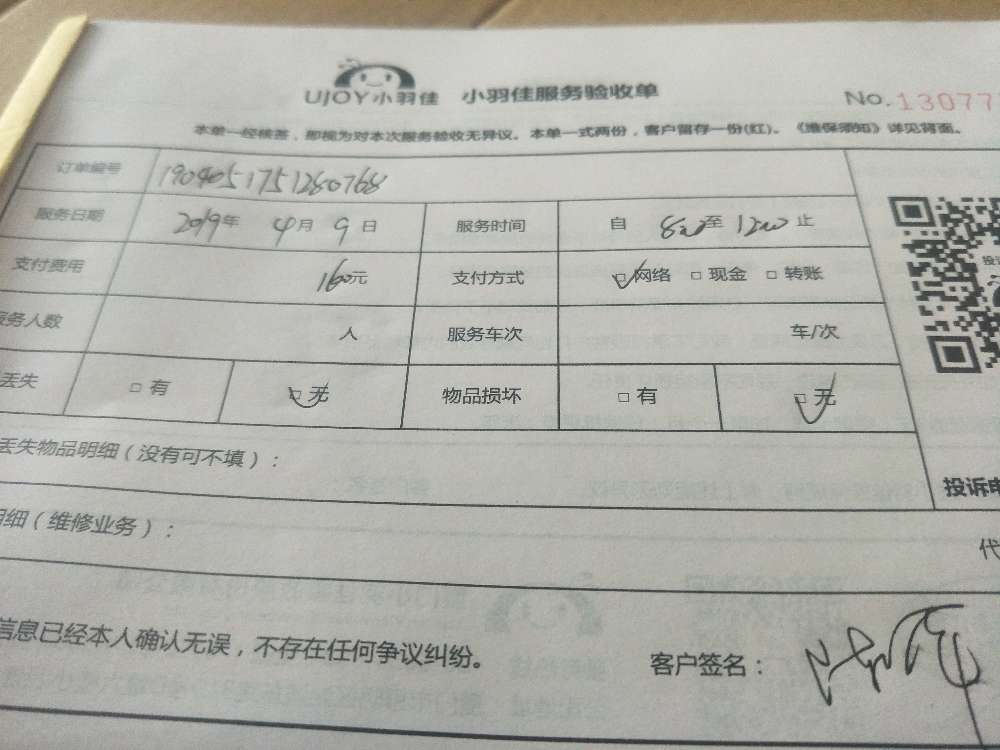 UJOY小羽佳 小羽佳服务验收单 No.13077
本单一经核签，即视为对本次服务验收无异议。本单一式两份，客户留存一份(红)。《维保须知》详见背面。
订单编号 1904051751280768
服务日期 2019年 4月 9日 服务时间 自 800至 1200止
支付费用 160元 支付方式 □网络 □现金 □转账
服务人数 人 服务车次 车/次
丢失 □有 □无 物品损坏 □有 □无
丢失物品明细（没有可不填）：
投诉电
明细（维修业务）：
代
信息已经本人确认无误，不存在任何争议纠纷。 客户签名：